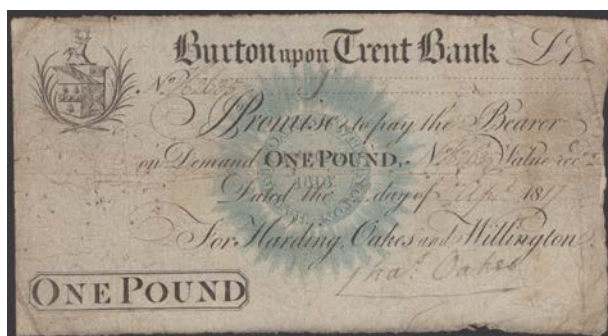 Burton upon Trent Bank £1
No
I Promise to pay the Bearer
on Demand ONE POUND, No Value recd
Dated the day of 1817
For Harding, Oakes and Willington
Thos. Oakes
ONE POUND